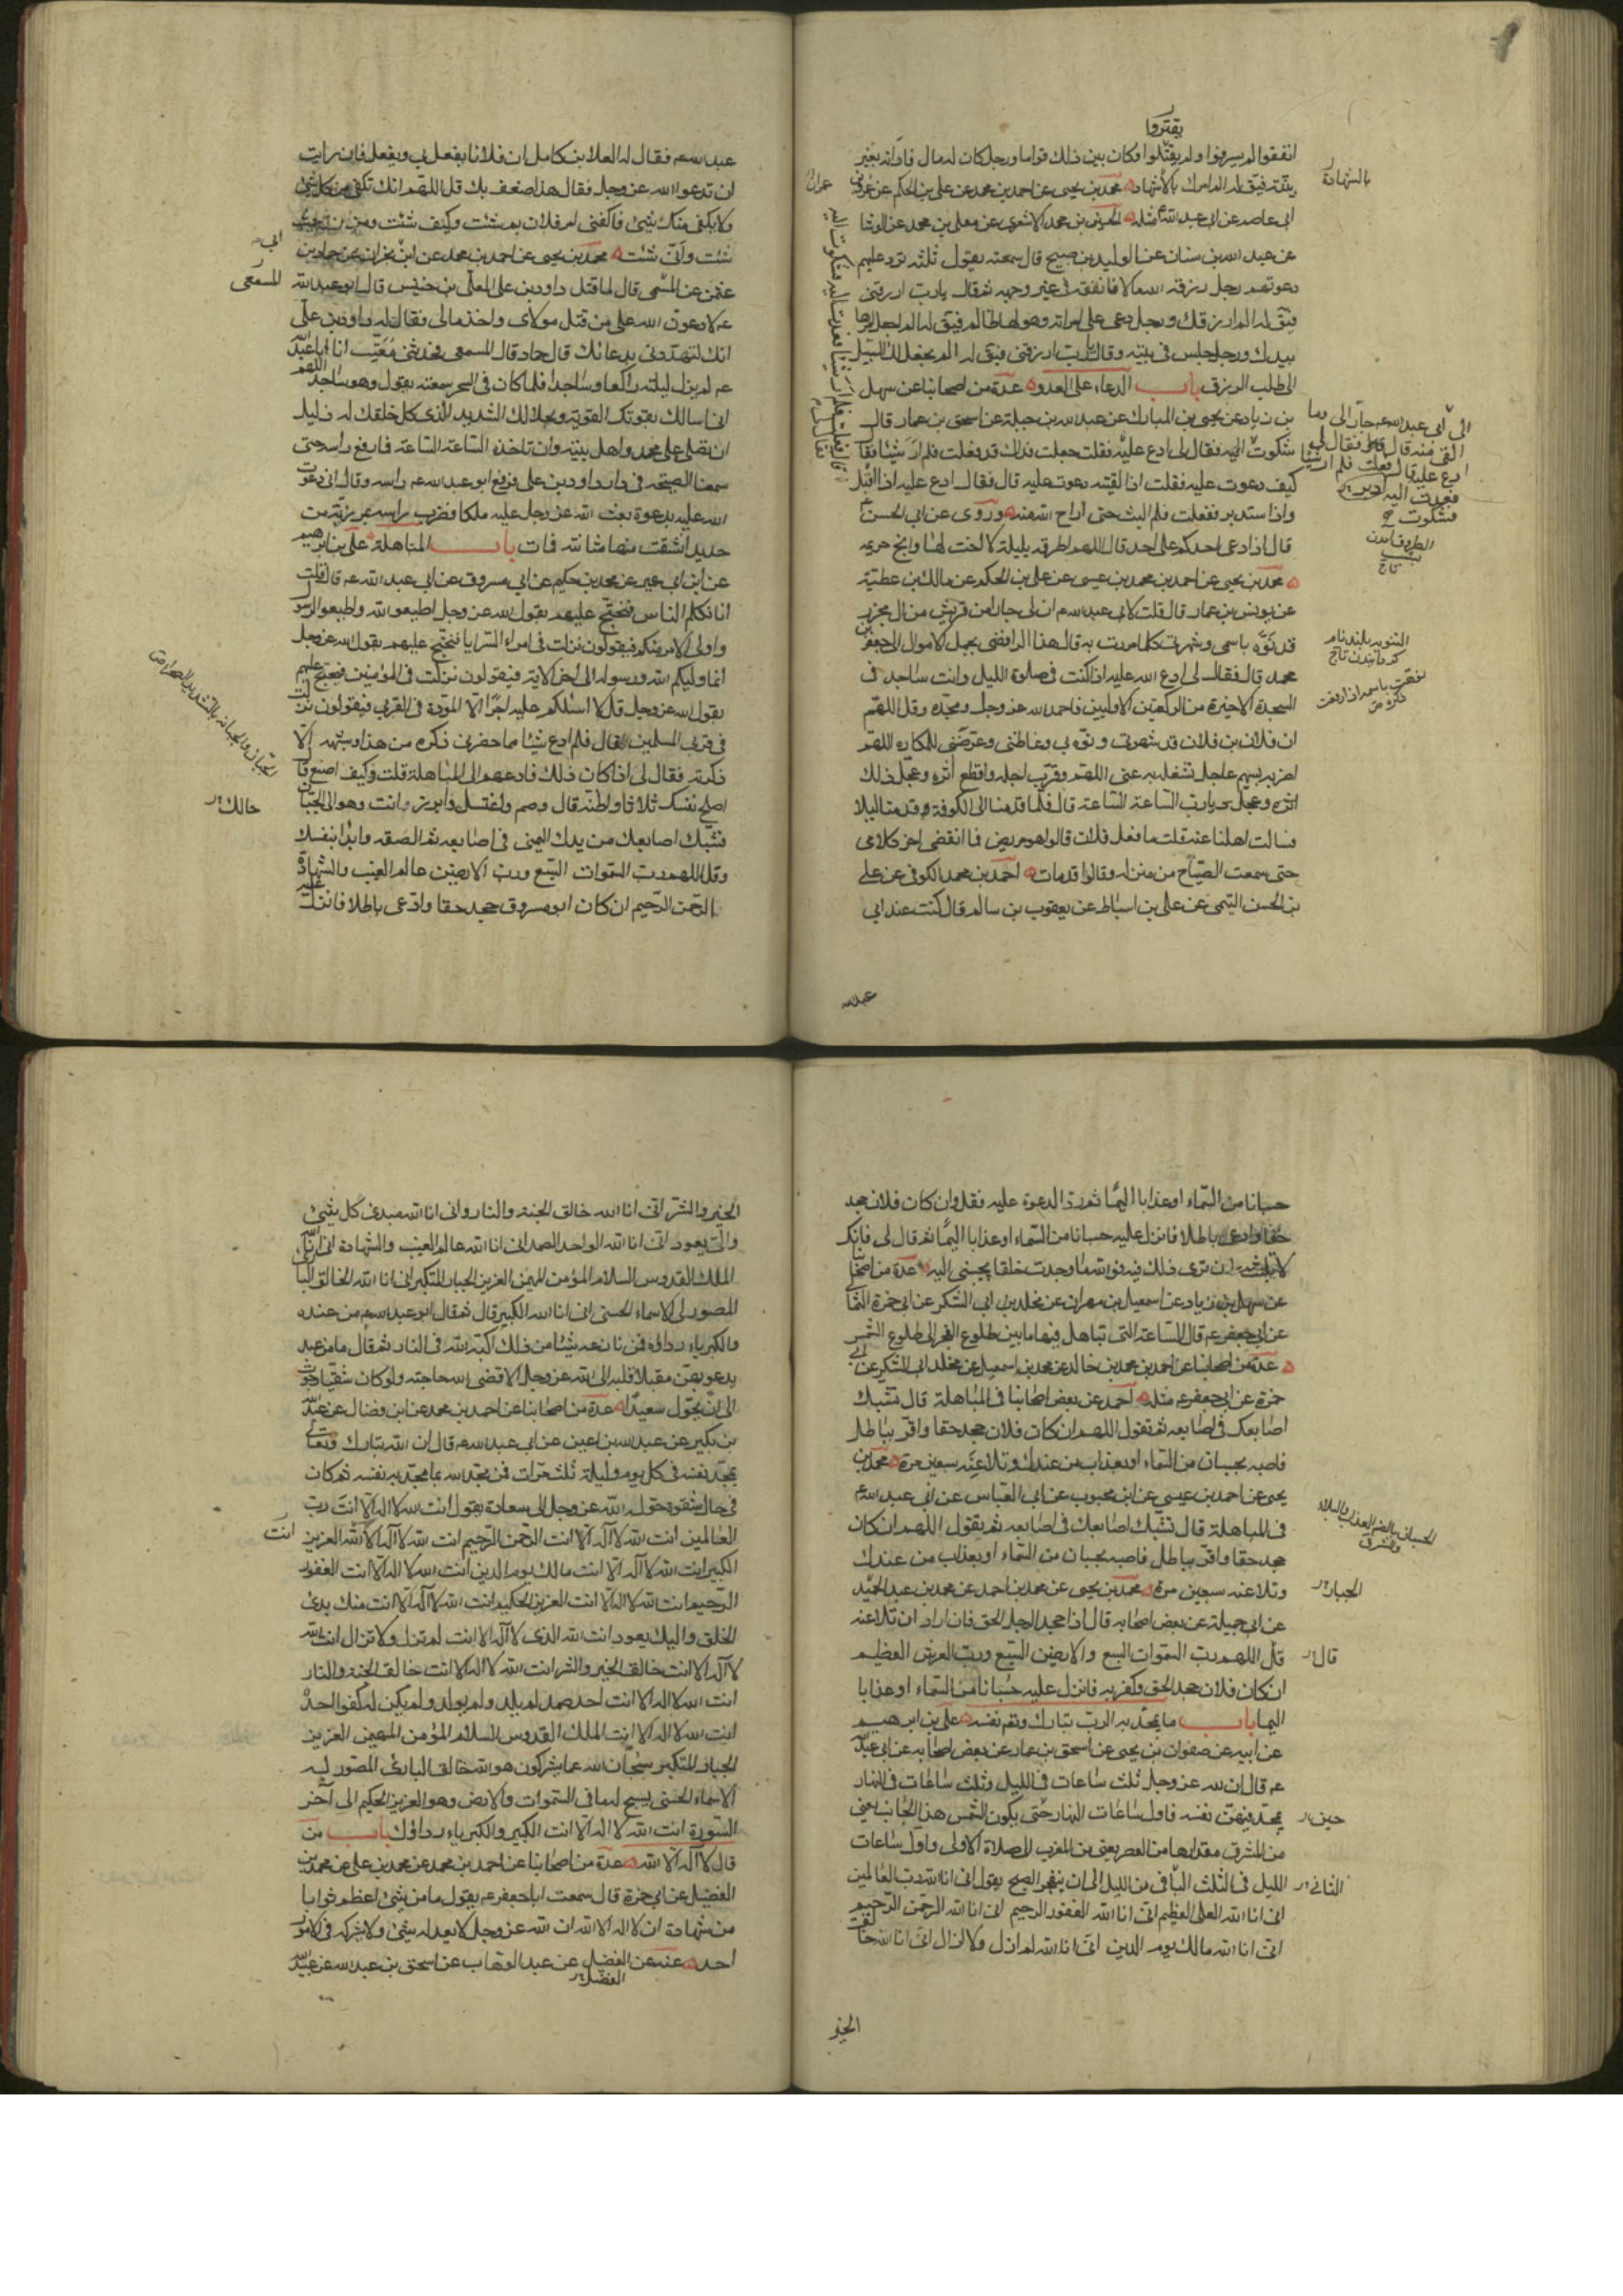 يقتروا
انفقوا لم يسرفوا ولم يقتلوا وكان بين ذلك قواما ورجل كان له مال فادانه بغير
بينة فيق له الم امرك بالاشهاد محمد بن يحيى عن احمد بن محمد عن علي بن الحكم عن عمران بن
بالشهادة
ابى عاصم عن ابى عبد الله ع مثله الحسين بن محمد الاشعرى عن معلى بن محمد عن الوشا
عن عبد الله بن سنان عن الوليد بن صبيح قال سمعته يقول ثلثه ترد عليهم
دعوتهم رجل رزقه الله مالا فانفقه فى غير وجهه ثم قال يارب ارزقنى
فيق له الم ارزقك ورجل دعى على امراته وهو لها ظالم فيق له الم اجعل امرها
بيدك ورجل جلس فى بيته وقال يارب ارزقنى فيق له الم يجعل لك السبيل
الى طلب الرزق باب الدعاء على العدو عدة من اصحابنا عن سهل
بن زياد عن يحيى بن المبارك عن عبد الله بن جبلة عن اسحق بن عمار قال
شكوت اليه فقال لى ادع عليه فقلت جعلت فداك قد فعلت فلم ار شيئا فقا
كيف دعوت عليه فقلت اذا لقيته دعوت عليه قال فقال ادع عليه اذا اقبل
واذا استدبر ففعلت فلم البث حتى اراح الله منه وروى عن ابى الحسن ع
قال اذا دعى احدكم على احد قال اللهم اطرقه بليلة لا اخت لها وابح حريمه
محمد بن يحيى عن احمد بن محمد بن عيسى عن على بن الحكم عن مالك بن عطية
عن يونس بن عمار قال قلت لابى عبد الله ع ان لى جارا من قريش من ال محرز
قد نوه باسمى وشهرنى كلما مررت به قال هذا الرافضى يحمل الاموال الى جعفر بن
محمد قال فقال لى ادع الله عليه اذا كنت فى صلوة الليل وانت ساجد فى
السجدة الاخيرة من الركعتين الاوليين فاحمد الله عز وجل ومجده وقل اللهم
ان فلان بن فلان قد شهرنى ونوه بى وغاظنى وعرضنى للمكاره اللهم
اضربه بسهم عاجل تشغله به عنى اللهم وقرب اجله واقطع اثره وعجل ذلك
يارب الساعة الساعة قال فلما قدمنا الى الكوفة قدمنا ليلا
فسالت اهلنا عنه قلت ما فعل فلان قالوا هو مريض فما انقضى اخر كلامى
حتى سمعت الصياح من منزله وقالوا قد مات احمد بن محمد الكوفى عن على
بن الحسن التيمى عن على بن اسباط عن يعقوب بن سالم قال كنت عند ابى
عبد الله
عبد الله ع فقال له العلا بن كامل ان فلانا يفعل بى ويفعل فان رايت
ان تدعو الله عز وجل فقال هذا ضعف بك قل اللهم انك تكفى من كل شئ
ولا يكفى منك شئ فاكفنى امر فلان بم شئت وكيف شئت ومن حيث
شئت وانى شئت محمد بن يحيى عن احمد بن محمد عن ابن ابى نجران عن حماد بن
عثمن عن المسمعى قال لما قتل داود بن على المعلى بن خنيس قال ابو عبد الله
ع لادعون الله على من قتل مولاى واخذ مالى فقال له داود بن على
انك لتهددنى بدعائك قال حماد قال المسمعى فحدثنى معتب ان ابا عبد
ع لم يزل ليلته راكعا وساجدا فلما كان فى السحر سمعته يقول وهو ساجد اللهم
انى اسالك بقوتك القوية وبجلالك الشديد الذى كل خلقك له ذليل
ان تصلى على محمد واهل بيته وان تاخذه الساعة الساعة فما رفع راسه حتى
سمعنا الصيحة فى دار داود بن على فرفع ابو عبد الله ع راسه وقال انى دعوت
الله عليه بدعوة بعث الله عز وجل عليه ملكا فضرب راسه بمرزبة من
حديد انشقت منها مثانته فمات باب المباهلة على بن ابرهيم
عن ابن ابى عمير عن محمد بن حكيم عن ابى مسروق عن ابى عبد الله ع قال قلت
انا نكلم الناس فنحتج عليهم بقول الله عز وجل اطيعوا الله واطيعوا الرسول
واولى الامر منكم فيقولون نزلت فى امراء السرايا فنحتج عليهم بقول الله عز وجل
انما وليكم الله ورسوله الى اخر الاية فيقولون نزلت فى المؤمنين فنحتج عليهم
بقول الله عز وجل قل لا اسئلكم عليه اجرا الا المودة فى القربى فيقولون نزلت
فى قربى المسلمين قال فلم ادع شيئا مما حضرنى ذكره من هذا وشبهه الا
ذكرته فقال لى اذا كان ذلك فادعهم الى المباهلة قلت وكيف اصنع قا
اصلح نفسك ثلاثا واظنه قال وصم واغتسل وابرز وانت وهو الى الجبان
فشبك اصابعك من يدك اليمنى فى اصابعه ثم انصفه وابدا بنفسك
وقل اللهم رب السموات السبع ورب الارضين عالم الغيب والشهادة
الرحمن الرحيم ان كان ابو مسروق جحد حقا وادعى باطلا فانزل عليه
حسبانا من السماء او عذابا اليما ثم رد الدعوة عليه فقل وان كان فلان جحد
حقا وادعى باطلا فانزل عليه حسبانا من السماء او عذابا اليما ثم قال لى فانك
لا تلبث ان ترى ذلك فيه فوالله ما وجدت خلقا يجيبنى اليه عدة من اصحابنا
عن سهل بن زياد عن اسمعيل بن مهران عن مخلد بن ابى الشكر عن ابى حمزة الثمالى
عن ابى جعفر ع قال الساعة التى تباهل فيها ما بين طلوع الفجر الى طلوع الشمس
عدة من اصحابنا عن احمد بن محمد بن خالد عن محمد بن اسمعيل عن مخلد ابى الشكر عن ابى
حمزة عن ابى جعفر ع مثله احمد عن بعض اصحابنا فى المباهلة قال تشبك
اصابعك فى اصابعه ثم تقول اللهم ان كان فلان جحد حقا واقر بباطل
فاصبه بحسبان من السماء او بعذاب من عندك وتلاعنه سبعين مرة محمد بن
يحيى عن احمد بن محمد بن عيسى عن ابن محبوب عن ابى العباس عن ابى عبد الله ع
فى المباهلة قال تشبك اصابعك فى اصابعه ثم يقول اللهم ان كان
جحد حقا واقر بباطل فاصبه بحسبان من السماء او بعذاب من عندك
وتلاعنه سبعين مرة محمد بن يحيى عن محمد بن احمد عن محمد بن عبد الحميد
عن ابى جميلة عن بعض اصحابه قال اذا جحد الرجل الحق فان اراد ان تلاعنه
قل اللهم رب السموات السبع والارضين السبع ورب العرش العظيم
ان كان فلان جحد الحق وكفر به فانزل عليه حسبانا من السماء او عذابا
اليما باب ما يمجد به الرب تبارك وتع نفسه على بن ابرهيم
عن ابيه عن صفوان بن يحيى عن اسحق بن عمار عن بعض اصحابه عن ابى عبد
ع قال ان لله عز وجل ثلث ساعات فى الليل وثلث ساعات فى النهار
يمجد فيهن نفسه فاول ساعات النهار حتى يكون الشمس هذا الجانب يعنى
حين
من المشرق مقدارها من العصر يعنى من المغرب الى صلاة الاولى واول ساعات
الليل فى الثلث الباقى من الليل الى ان ينفجر الصبح يقول انى انا الله رب العالمين
الثانى
انى انا الله العلى العظيم انى انا الله الغفور الرحيم انى انا الله الرحمن الرحيم
انى انا الله مالك يوم الدين انى انا الله لم ازل ولا ازال انى انا الله خالق
الخير
الخير والشر انى انا الله خالق الجنة والنار وانى انا الله مبدئ كل شئ
والى يعود انى انا الله الواحد الصمد انى انا الله عالم الغيب والشهادة انى انا الله
الملك القدوس السلام المؤمن المهيمن العزيز الجبار المتكبر انى انا الله الخالق البا
المصور لى الاسماء الحسنى انى انا الله الكبير قال ثم قال ابو عبد الله ع من عنده
والكبرياء رداؤه فمن نازعه شيئا من ذلك اكبه الله فى النار ثم قال ما من عبد
يدعو بهن مقبلا قلبه الى الله عز وجل الا قضى الله حاجته ولو كان شقيا رجوت
الى ان يحول سعيدا عدة من اصحابنا عن احمد بن محمد عن ابن فضال عن عبد
بن بكير عن عبد الله بن اعين عن ابى عبد الله ع قال ان الله تبارك وتعالى
يمجد نفسه فى كل يوم وليلة ثلث مرات فمن مجد الله بما مجد به نفسه ثم كان
فى حال شقوة حوله الله عز وجل الى سعادة يقول انت الله لا اله الا انت رب
العالمين انت الله لا اله الا انت الرحمن الرحيم انت الله لا اله الا الله العزيز
انت
الكبير انت الله لا اله الا انت مالك يوم الدين انت الله لا اله الا انت الغفور
الرحيم انت الله لا اله الا انت العزيز الحكيم انت الله لا اله الا انت منك بدئ
الخلق واليك يعود انت الله الذى لا اله الا انت لم تزل ولا تزال انت الله
لا اله الا انت خالق الخير والشر انت الله لا اله الا انت خالق الجنة والنار
انت الله لا اله الا انت احد صمد لم يلد ولم يولد ولم يكن له كفوا احد
انت الله لا اله الا انت الملك القدوس السلام المؤمن المهيمن العزيز
الجبار المتكبر سبحان الله عما يشركون هو الله خالق البارئ المصور له
الاسماء الحسنى يسبح له ما فى السموات والارض وهو العزيز الحكيم الى آخر
السورة انت الله لا اله الا انت الكبير والكبرياء رداؤك باب من
قال لا اله الا الله عدة من اصحابنا عن احمد بن محمد عن محمد بن على عن محمد بن
الفضيل عن ابى حمزة قال سمعت ابا جعفر ع يقول ما من شئ اعظم ثوابا
من شهادة ان لا اله الا الله ان الله عز وجل لا يعدله شئ ولا يشركه فى الامور
احد عنه عن الفضيل عن عبد الوهاب عن اسحق بن عبد الله عن عبيد
الفضل